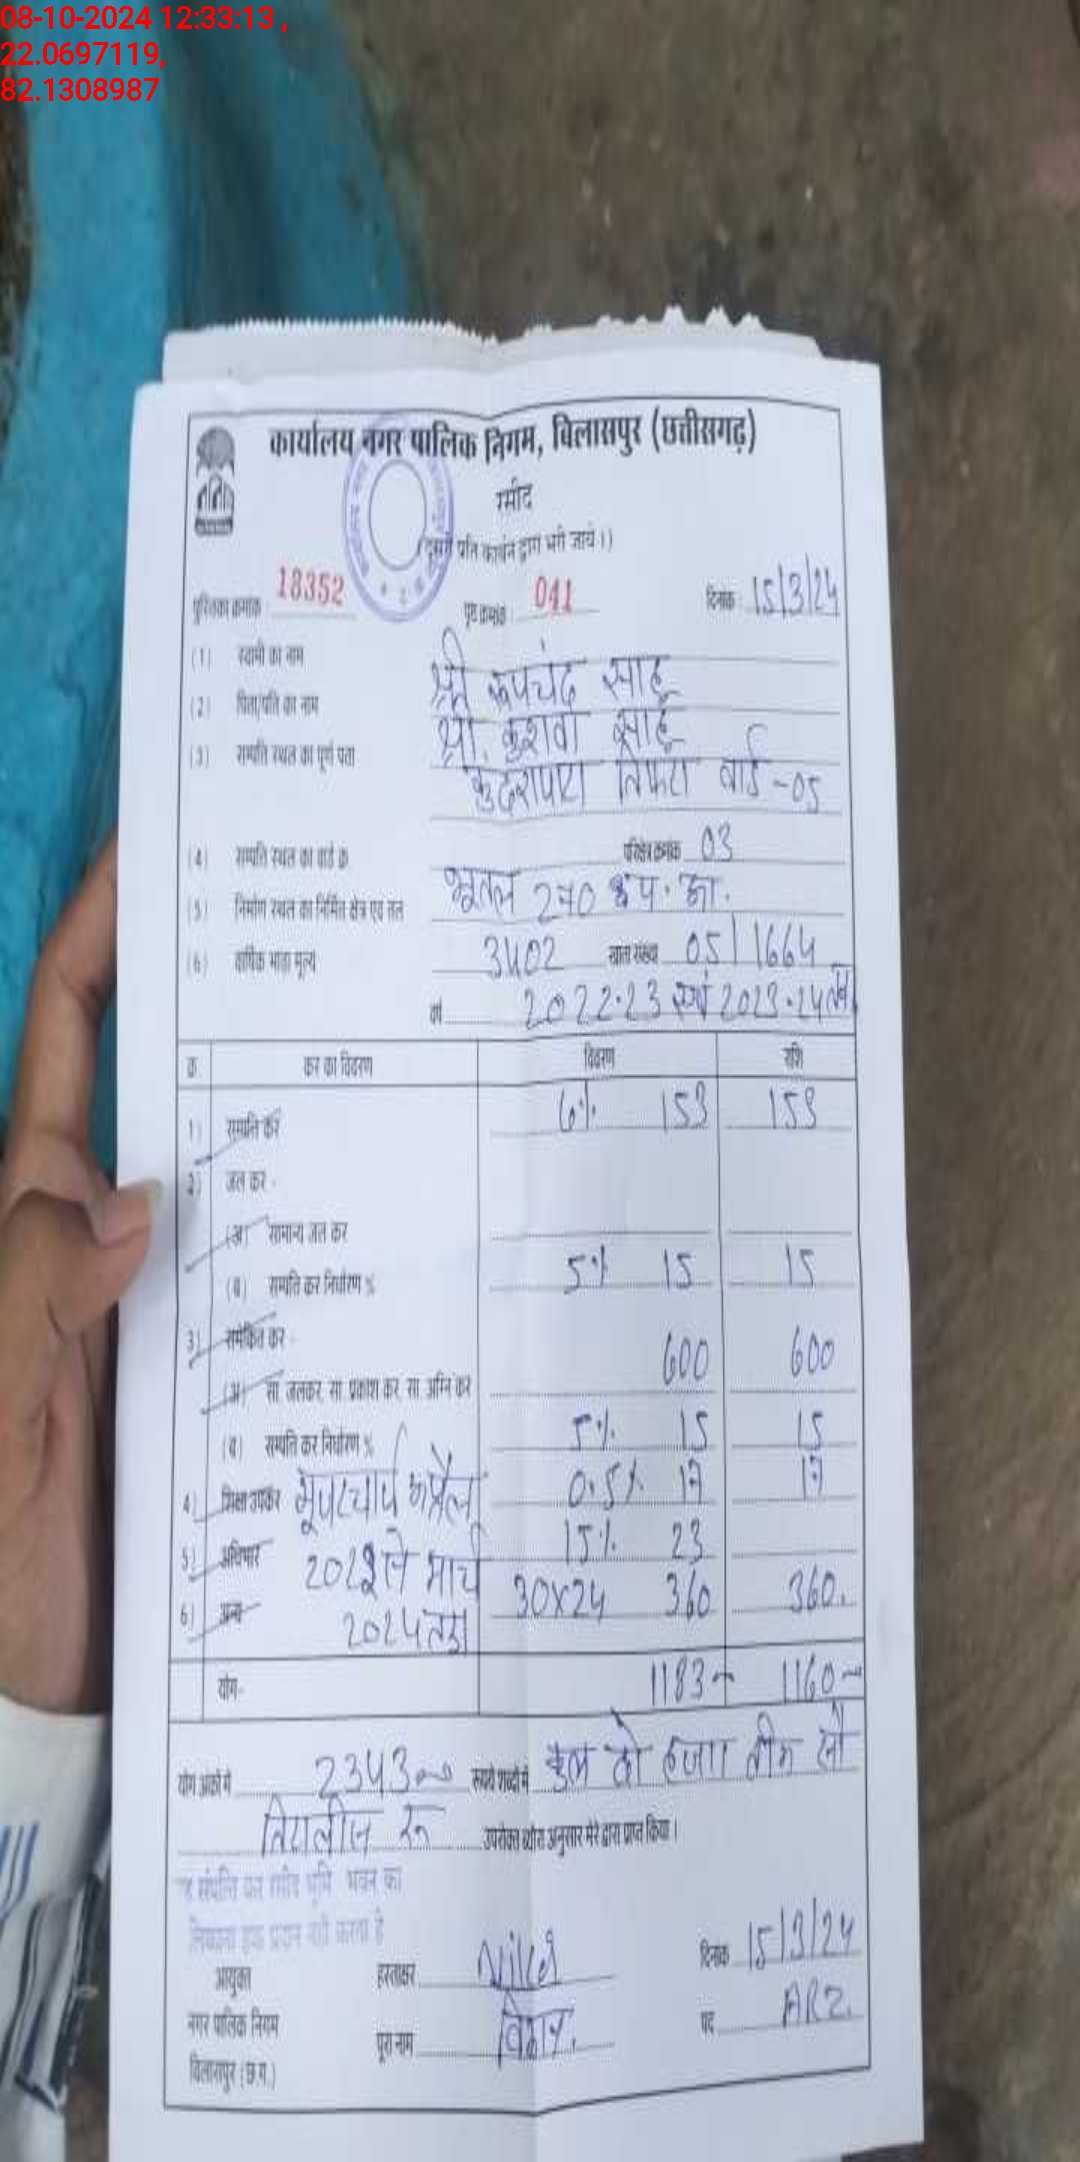 08-10-2024 12:33:13 ,
22.0697119,
82.1308987
कार्यालय नगर पालिक निगम, बिलासपुर (छत्तीसगढ़)
रसीद
(दूसरी प्रति कार्बन द्वारा भरी जाये।)
पुस्तिका क्रमांक 18352 पृष्ठ क्रमांक 041 दिनांक 15/3/24
(1) स्वामी का नाम श्री रूपचंद साहू
(2) पिता/पति का नाम श्री. कुशवा साहू
(3) सम्पत्ति स्थल का पूर्ण पता कुदरापारा तिफरा वार्ड -05
(4) सम्पत्ति स्थल का वार्ड क्र परिक्षेत्र क्रमांक 03
(5) निर्माण स्थल का निर्मित क्षेत्र एवं तल भूतल 270
(6) वार्षिक भाड़ा मूल्य 3402 खाता संख्या 05/1664
वर्ष 2022-23 एवं 2023-24
क्र. कर का विवरण विवरण राशि
1) सम्पत्ति कर 6% 153 153
2) जल कर -
(अ) सामान्य जल कर
(ब) सम्पत्ति कर निर्धारण % 5% 15 15
3) समेकित कर - 600 600
(अ) सा. जलकर, सा. प्रकाश कर, सा. अग्नि कर
(ब) सम्पत्ति कर निर्धारण % 5% 15 15
4) शिक्षा उपकर 0.5% 17 17
5) अधिभार 15% 23
6) अन्य 30x24 360 360.
2024 तक
योग- 1183 1160
योग अंकों में 2343 रूपये शब्दों में कुल दो हजार तीन सौ
तिरालीस रू उपरोक्त ब्योरा अनुसार मेरे द्वारा प्राप्त किया।
संपत्ति कर रसीद भूमि भवन का
प्रदान नही करता है
आयुक्त हस्ताक्षर दिनांक 15/3/24
नगर पालिक निगम पूरा नाम विकास. पद ARI.
बिलासपुर (छ.ग.)